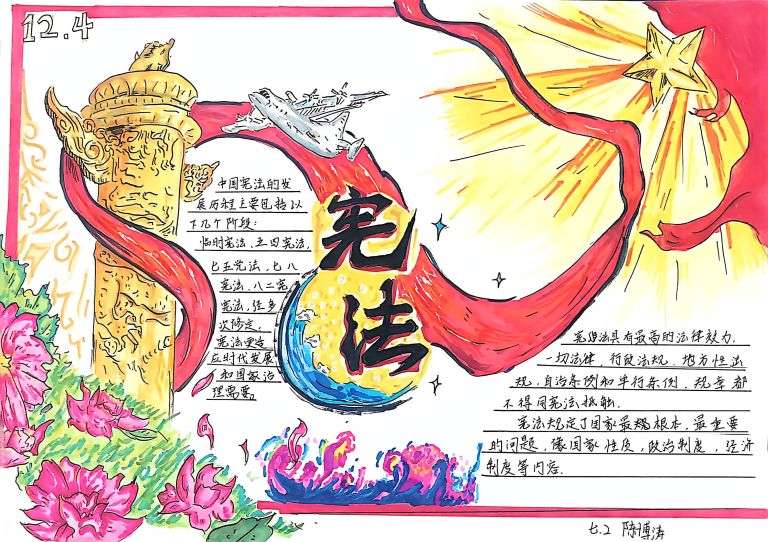 12.4
中国宪法的发
展历程主要包括以
下几个阶段：
临时宪法、五四宪法、
七五宪法，七八
宪法，八二宪
宪法，经多
次修定，
宪法更适
应时代发展
和国家治
理需要。
宪法
宪法具有最高的法律效力，
一切法律，行政法规，地方性法
规，自治条例和单行条例，规章都
不得同宪法抵触．
宪法规定了国家最根本，最重要
的问题，像国家性质，政治制度，经济
制度等内容．
七.2 陈博涛